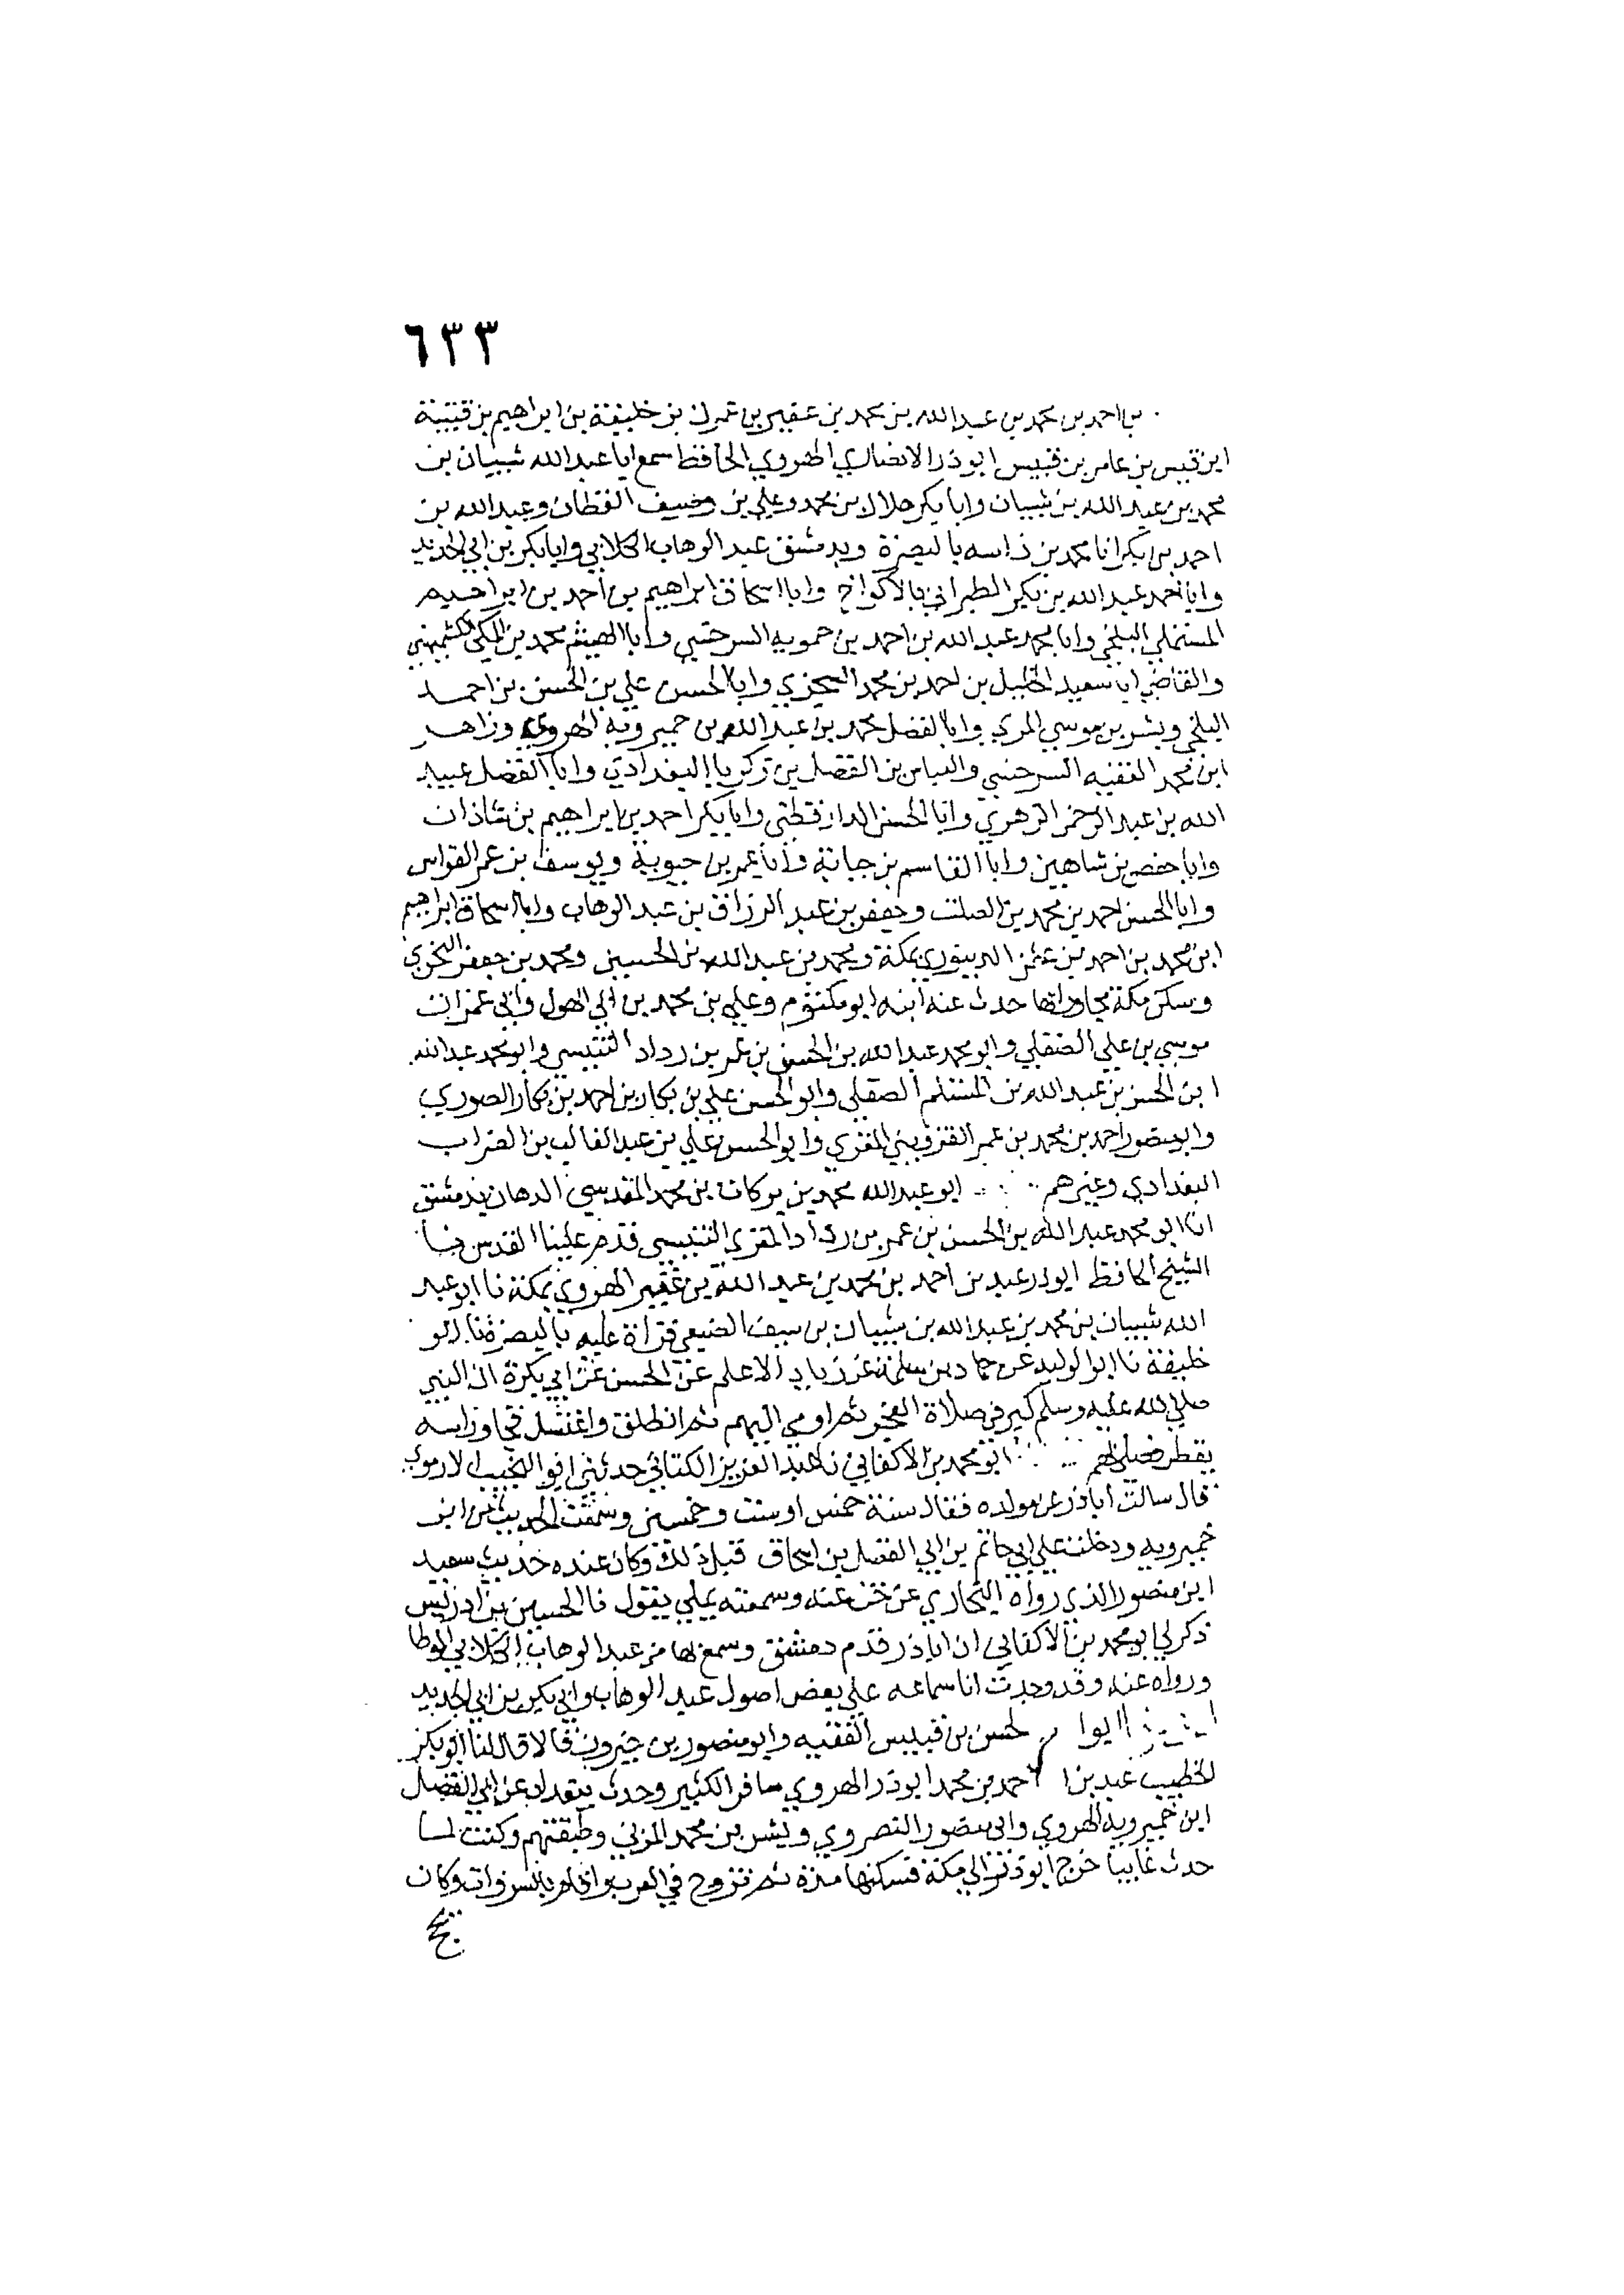 ٦٣٣
بن احمد بن محمد بن عبدالله بن محمد بن عفير بن محمد بن خليفة بن ابراهيم بن قتيبة
ابن قيس بن عامر بن قيس ابو ذر الانصاري الهروي الحافظ سمع ابا عبدالله شيبان بن
محمد بن عبد الله بن شيبان وابا بكر هلال بن محمد وعلي بن وصيف القطان وعبد الله بن
احمد بن ابكر انا محمد بن داسه بالبصرة وبدمشق عبد الوهاب الكلابي وابا بكر بن ابي الحديد
وابا احمد عبد الله بن بكر الطبراني بالاكواخ وابا اسحاق ابراهيم بن احمد بن ابراهيم
المستملي البلخي وابا محمد عبد الله بن احمد بن حمويه السرخسي وابا الهيثم محمد بن المكي الكشميهني
والقاضي ابا سعيد الخليل بن احمد بن محمد السجزي وابا الحسن علي بن الحسن بن احمد
البلخي وبشر بن موسي المري وابا الفضل محمد بن عبد الله بن خميرويه الهروي وزاهر
ابن محمد الفقيه السرخسي والعباس بن الفضل بن زكريا البغدادي وابا الفضل عبيد
الله بن عبد الرحمن الزهري وابا الحسن الدارقطني وابا بكر احمد بن ابراهيم بن شاذان
وابا حفص بن شاهين وابا القاسم بن حبابة وابا عمر بن حيوية ويوسف بن عمر القواس
وابا الحسن احمد بن محمد بن الصلت وجعفر بن عبد الرزاق بن عبد الوهاب وابا اسحاق ابراهيم
ابن محمد بن احمد بن عثمن الدينوري بمكة ومحمد بن عبد الله بن الحسين ومحمد بن جعفر النحوي
وسكن مكة مجاورا بها حدث عنه ابنه ابو مكتوم وعلي بن محمد بن ابي الهول وابي عمران
موسي بن علي الصقلي وابو محمد عبد الله بن الحسن بن عمر بن رداد التنيسي وابو محمد عبد الله
ابن الحسن بن عبد الله بن المسلم الصقلي وابو الحسن علي بن بكار بن احمد بن بكار الصوري
وابو منصور احمد بن محمد بن عمر القزويني المقري وابو الحسن علي بن عبد الغالب بن الضراب
البغدادي وغيرهم ابو عبد الله محمد بن بركات بن محمد المقدسي الدهان بدمشق
انا ابو محمد عبد الله بن الحسن بن عمر بن رداد المقري التنيسي قدم علينا القدس نا
الشيخ الحافظ ابو ذر عبد بن احمد بن محمد بن عبد الله بن عفير الهروي بمكة نا ابو عبد
الله شيبان بن محمد بن عبد الله بن شيبان بن سيف الضبعي قراة عليه بالبصرة نا ابو
خليفة نا ابو الوليد عن حماد بن سلمة عن زياد الاعلم عن الحسن عن ابي بكرة ان النبي
صلي الله عليه وسلم كبر في صلاة الفجر ثم اومي اليهم ثم انطلق واغتسل فجا وراسه
يقطر فصلي بهم ابو محمد بن الاكفاني نا عبد العزيز الكتاني حدثني ابو النجيب الارموي
قال سالت ابا ذر عن مولده فقال سنة خمس او ست وخمسين وسمعت الحديث من ابن
خميرويه ودخلت علي ابي حاتم بن ابي الفضل بن اسحاق قبل ذلك وكان عنده حديث سعيد
ابن منصور الذي رواه البخاري عن خت عنه وسمعته يملي يقول نا الحسين بن ادريس
ذكر لي ابو محمد بن الاكفاني ان ابا ذر قدم دمشق وسمع بها من عبد الوهاب الكلابي الموطا
ورواه عنه وقد وجدت انا سماعه علي بعض اصول عبد الوهاب وابي بكر بن ابي الحديد
ابو ا لحسن بن قبيس الفقيه وابو منصور بن خيرون قالا قال لنا ابو بكر
الخطيب عبد بن احمد بن محمد ابو ذر الهروي سافر الكثير وحدث ببغداد عن ابي الفضل
ابن خميرويه الهروي وابي منصور النضروي وبشر بن محمد المزني وطبقتهم وكنت لما
حدث غايبا خرج ابو ذر الي مكة فسكنها مدة ثم تزوج في العرب واقام بالسروات وكان
يحج